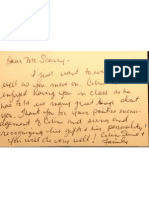 Dear Mr. Scanny-
I just want to
well as you move on. Colin
enjoyed having you in class as he
has told us many great things about
you. Thank you for your positive encour-
agement of Colin and seeing and
recognizing his gifts & his personality!
You will do very well!
Family